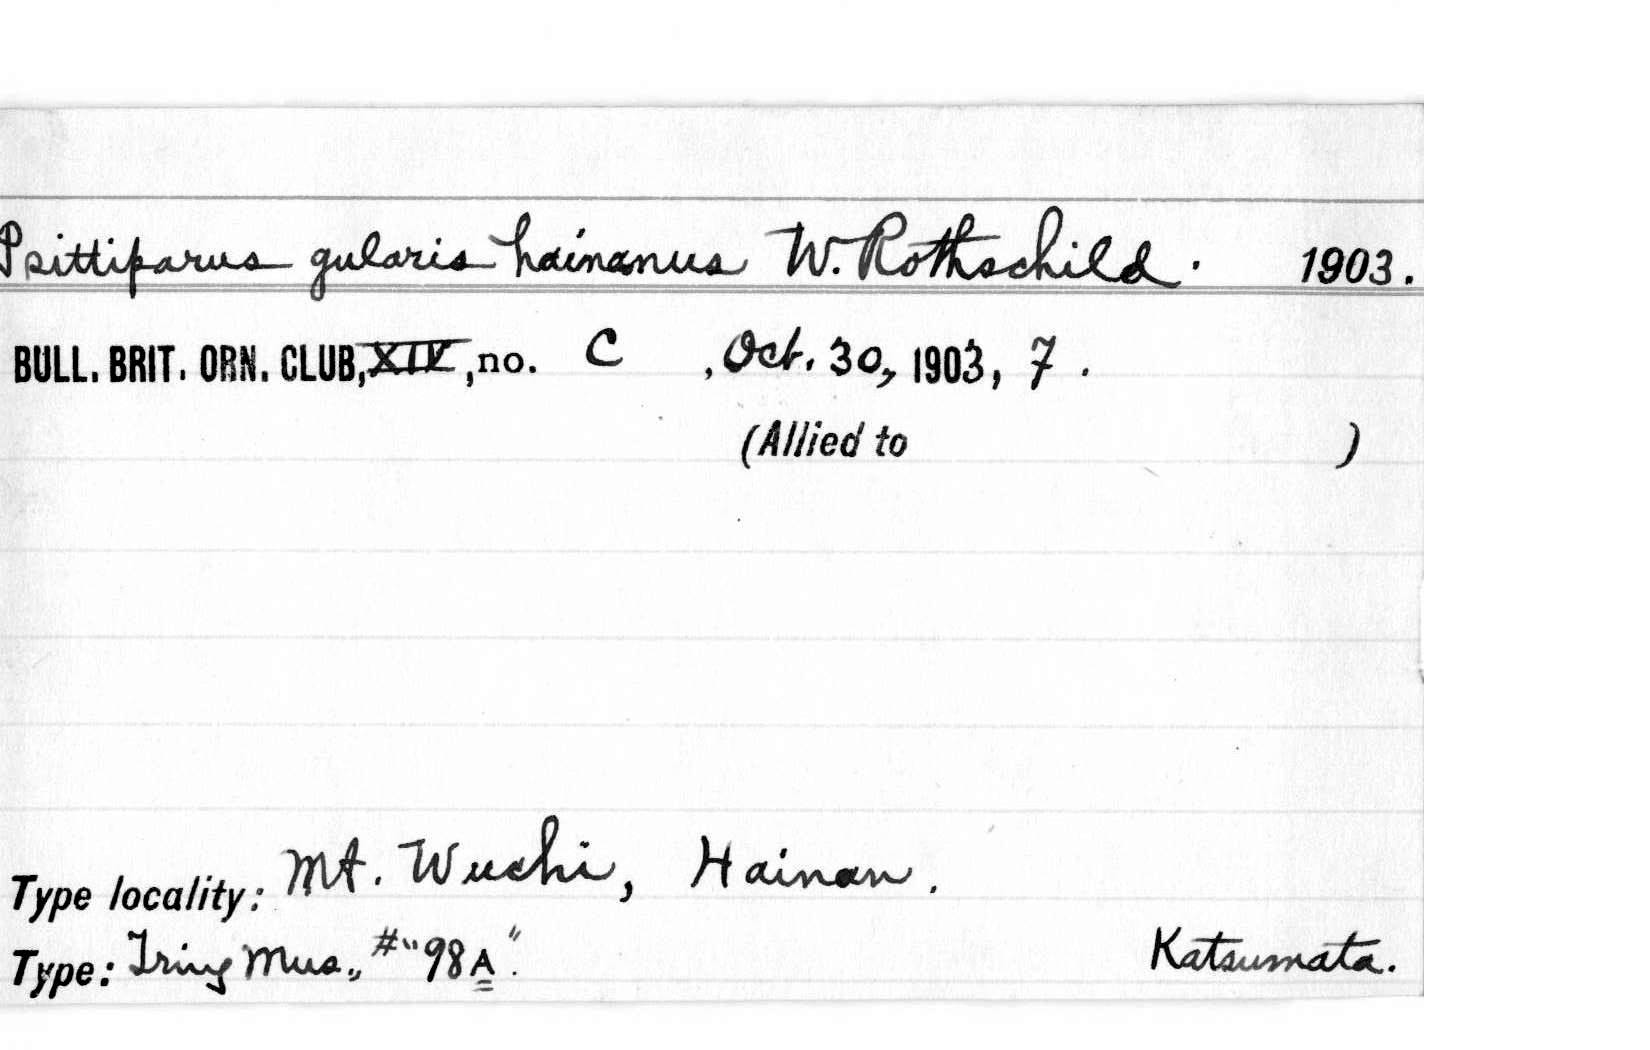 Psittiparus gularis hainanus W. Rothschild. 1903.
BULL. BRIT. ORN. CLUB, XIV, no. C , Oct. 30, 1903, 7.
(Allied to )
Type locality: Mt. Wuchi, Hainan.
Type: Tring Mus., #"98A". Katsumata.